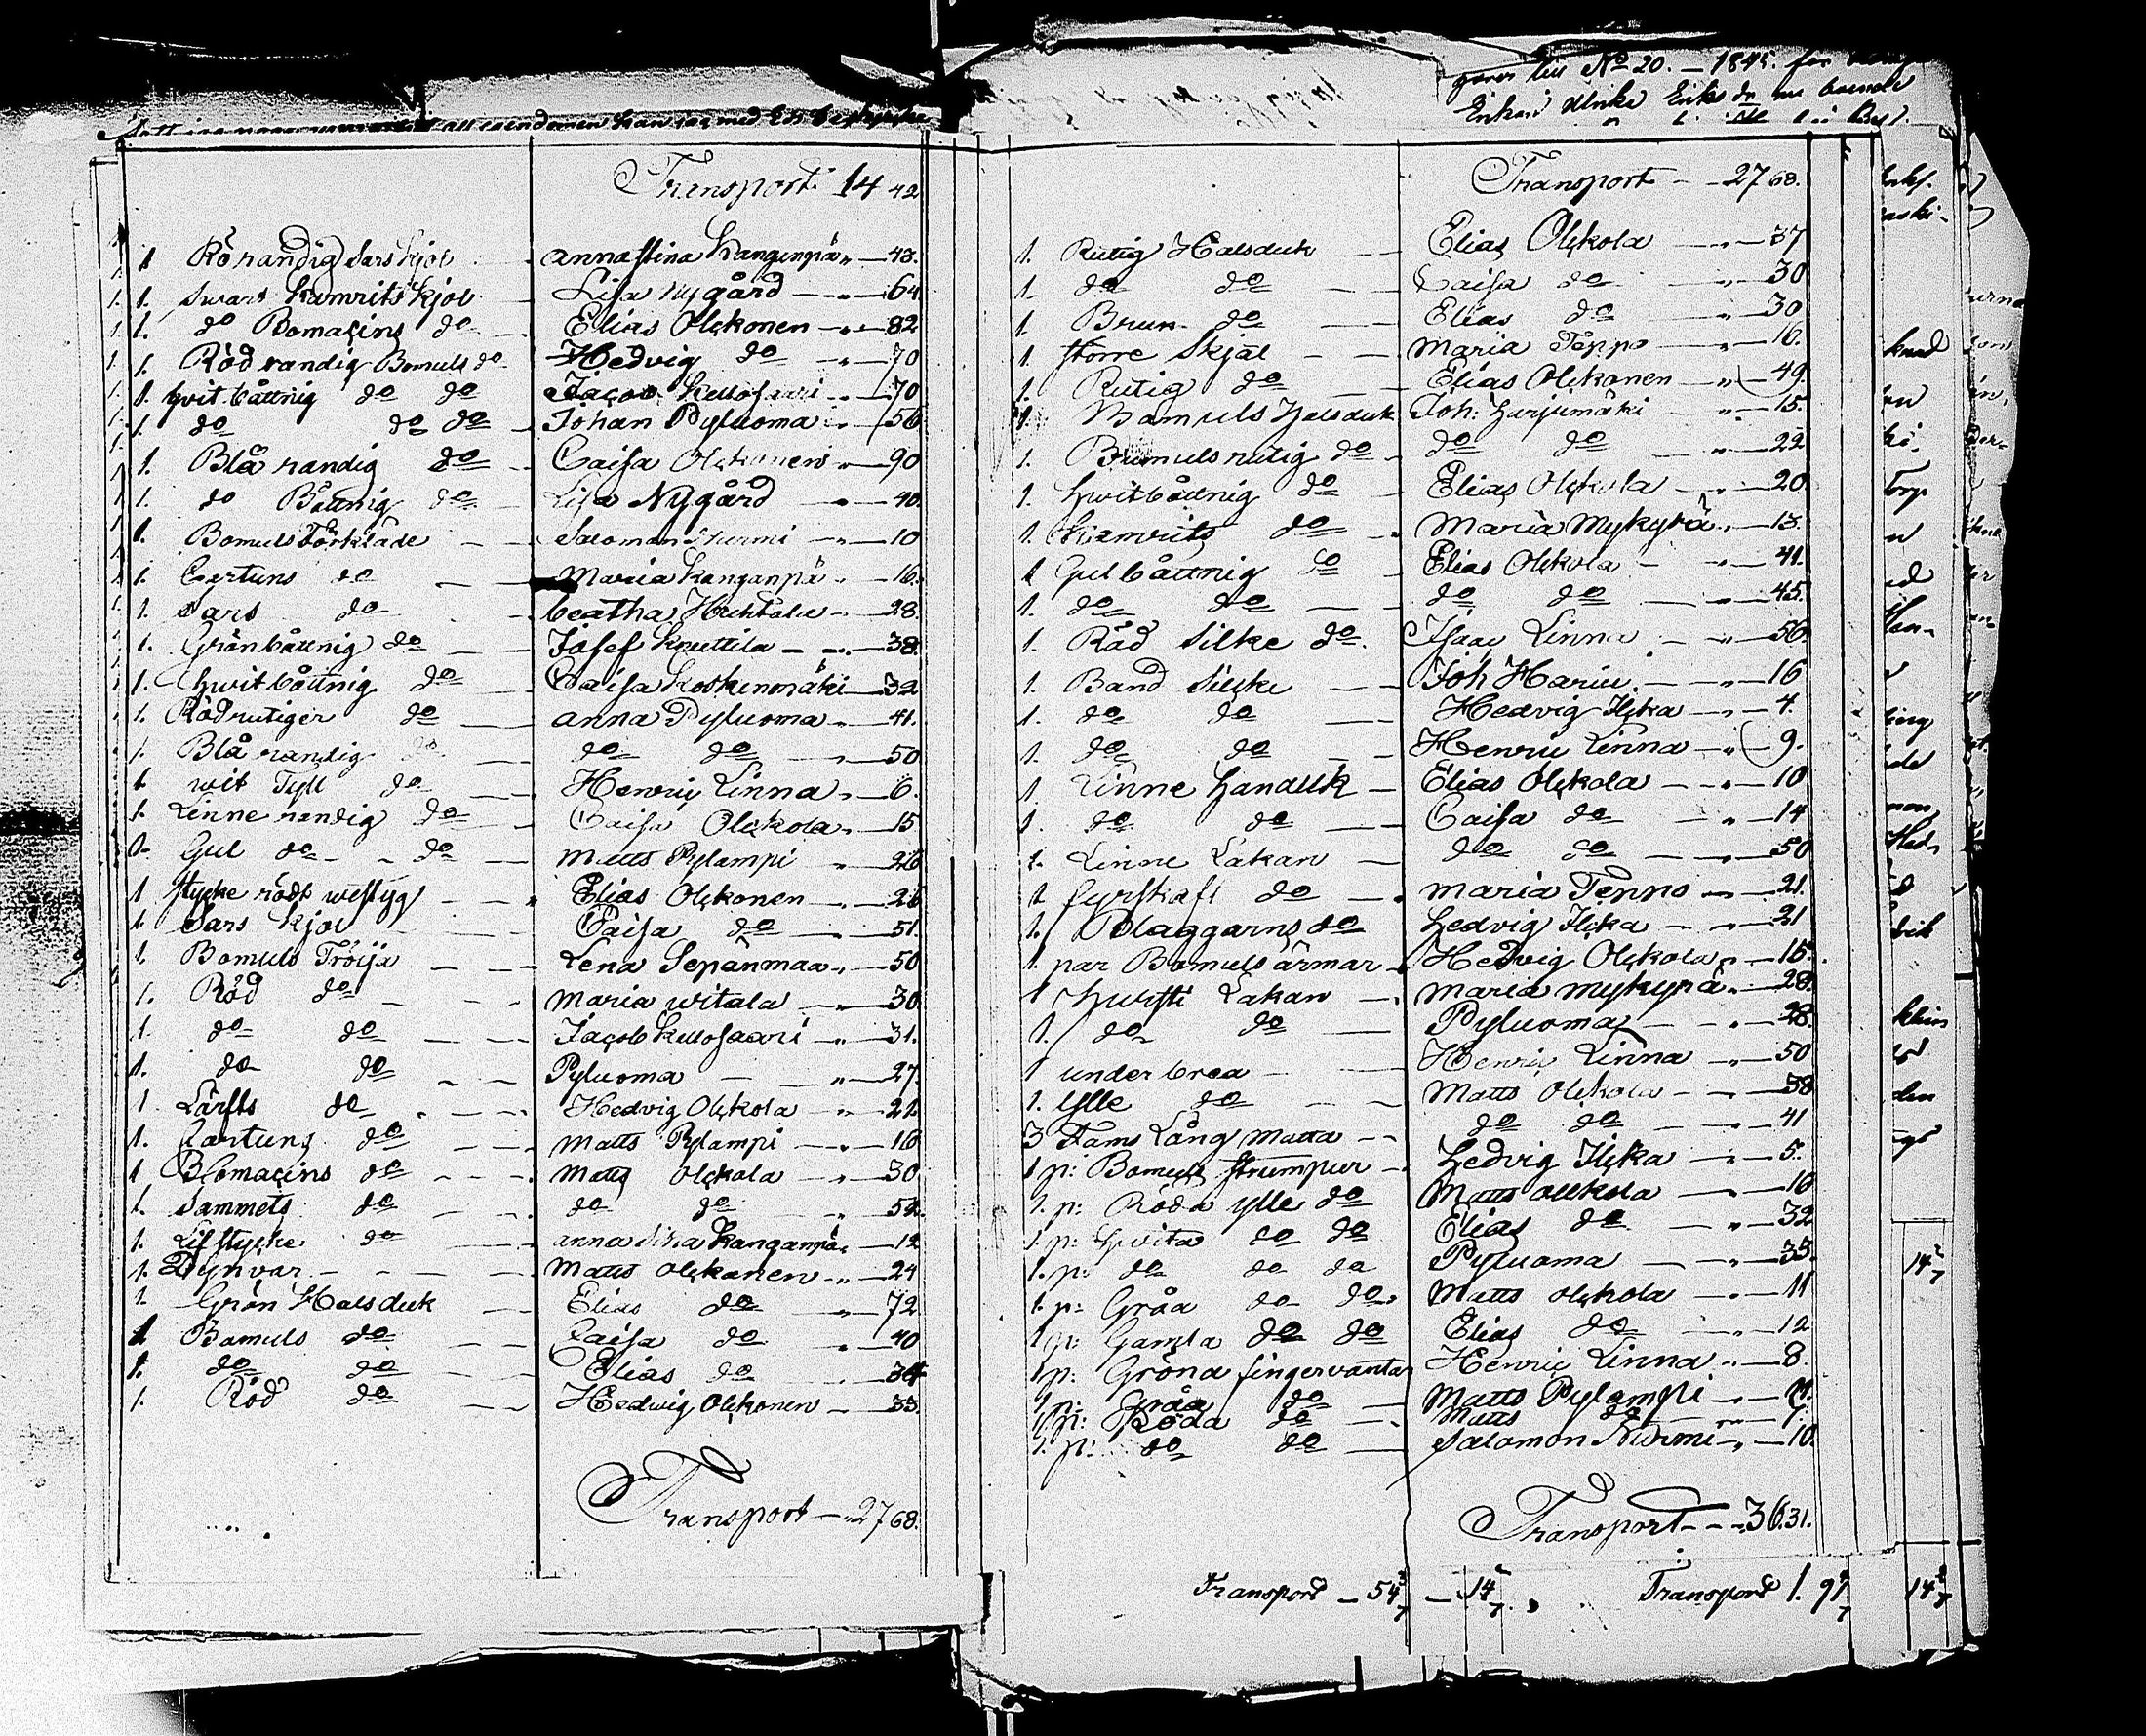 Transport 14 42
1 Rörandig Sars kjol annastina Kanganpä 48.
1. Swart Kamrits kjol Lisa Nygård 64
1. do Bomasins do Elias Olckonen 82
1. Röd randig Bomuls do Hedvig do 70
1. hvit båttnig do do Jacob Kellosaari 70
1. do do do Johan Pyluoma 56
1. Blå randig do Caisa Olckonen 90
1. do Båttnig do Lisa Nygård 40.
1. Bomuls Förkläde Saloman Nurmi 10
1. Cartuns do Maria Kanganpä 16.
1. Sars do beatha Huhtala 28.
1. Grönbåttnig do Josef Knuttila 38.
1. hwitbåttnig do Caisa Koskenmäki 32
1. Rödrutiger do anna Pyluoma 41.
1. Blå randig do do do 50
1. wit Tyll do Henric Linna 6.
1. Linne randig do Caisa Olckola 15
1. Gul do do Matts Pylampi 26
1 stycke rödt westyg Elias Olckonen 26
1. Sars kjol Caisa do 51.
1. Bomuls Tröija Lena Sepänmaa 50
1. Röd do Maria witala 30
1. do do Jacob Kellosaari 31.
1. do do Pyluoma 27.
1. Lärfts do Hedvig Olckola 21.
1. Cartuns do Matts Pylampi 16
1 Blomasins do Matts Olckola 30
1. Sammets do do do 52.
1. Lifstycke do anna Stina Kanganpä 12
1. Dynvar Matts Olckanen 24
1. Grön Halsduk Elias do 72
1 Bamuls do Caisa do 40
1. do do Elias do 34
1. Röd do Hedwig Olckonen 33.
Transport 27 68.
gåves till No 20. 1845. för
Transport 27 68.
1. Rutig Halsduk Elias Olckola 37
1. do do Caisa do 30
1. Brun do Elias do 30
1. Större Skjäl Maria Teppo 16.
1. Rutig do Elias Olckonen 49.
1. Bamuls Halsduk Joh: Harjumäki 15.
1. Bumulsrutig do do do 22
1. hwitbåttnig do Elias Olckola 20
1. Kamrits do Maria Mykyrä 13.
1 Gulbåttnig do Elias Olckola 41.
1. do do do do 45.
1. Röd Silke do Isaac Linna 56
1. Band Silcke Joh Hariu 16
1. do do Hedvig Ilcka 4.
1. do do Henric Linna 9.
1. Linne handuk Elias Olckola 10
1. do do Caisa do 14
1. Linne Lakan do do 50
1. fyrskaft do Maria Teppo 21.
1. Blaggarns do hedvig Ilcka 21
1. par Bomuls ärmar Hedvig Olckola 15.
1 hursti Lakan Maria Mykyrä 28.
1. do do Pyluoma 28.
1 underbrea Henric Linna 50
1. Ylle do Matts Olckola 38
3 Fams Lång Matta do do 41
1 p: Bomuls strumpur hedvig Ilcka 5.
1. p: Röda ylle do Matts Olckola 16
1. p: hvita do do Elias do 32
1. p: do do do Pyluoma 33.
1. p: Gråa do do Matts Olckola 11
1 p: Gamla do do Elias do 12
1 p: Gröna fingervantar Henric Linna 8.
1 p: Gråa do Matts Pylampi
1 p: Röda do Matts do 7.
1. p: do do Salomon Nurmi 10.
Transport 36.31.
Transport 54 14 Transport 1. 91 14